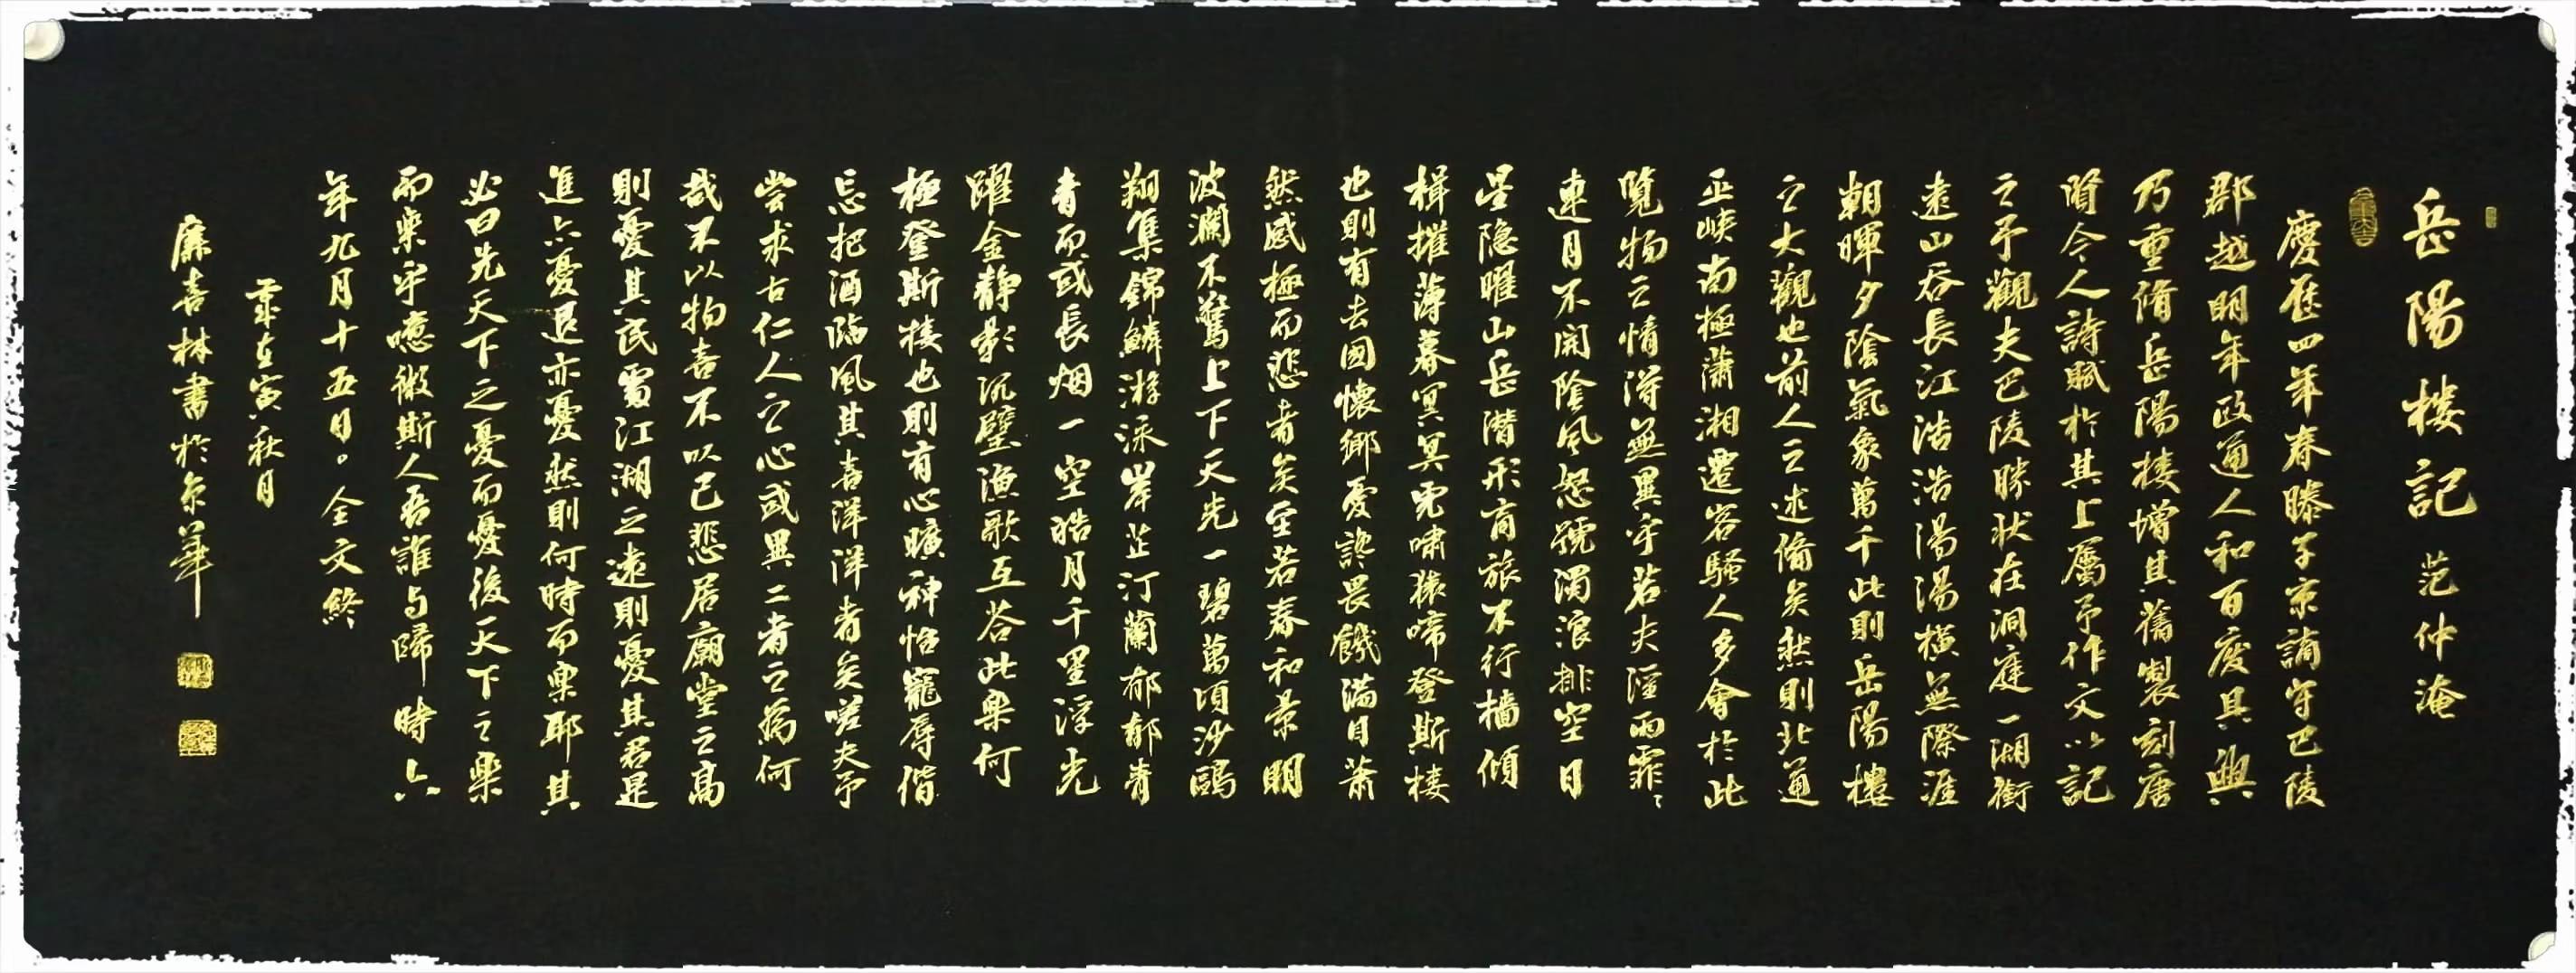 岳陽楼記 范仲淹
慶歷四年春滕子京謫守巴陵
郡越明年政通人和百廢具興
乃重脩岳陽楼增其舊製刻唐
賢今人詩賦於其上屬予作文以記
之予觀夫巴陵勝狀在洞庭一湖銜
遠山吞長江浩浩湯湯橫無際涯
朝暉夕陰氣象萬千此則岳陽樓
之大觀也前人之述俻矣然則北通
巫峽南極瀟湘遷客騷人多會於此
覽物之情得無異乎若夫淫雨霏々
連月不開陰風怒號濁浪排空日
星隐曜山岳潜形商旅不行檣傾
楫摧薄暮冥冥虎嘯猿啼登斯楼
也則有去國懷鄉憂讒畏饑滿目蕭
然感極而悲者矣至若春和景明
波瀾不驚上下天先一碧萬頃沙鷗
翔集錦鱗游泳岸芷汀蘭郁郁青
青而或長烟一空皓月千里浮光
躍金靜影沉璧漁歌互答此樂何
極登斯楼也則有心曠神怡寵辱偕
忘把酒臨風其喜洋洋者矣嗟夫予
嘗求古仁人之心或異二者之為何
哉不以物喜不以己悲居廟堂之高
則憂其民處江湖之遠則憂其君是
進亦憂退亦憂然則何時而樂耶其
必曰先天下之憂而憂後天下之樂
而樂乎噫微斯人吾誰与歸 時六
年九月十五日。全文終
歲在寅秋月
廉喜林書於京華